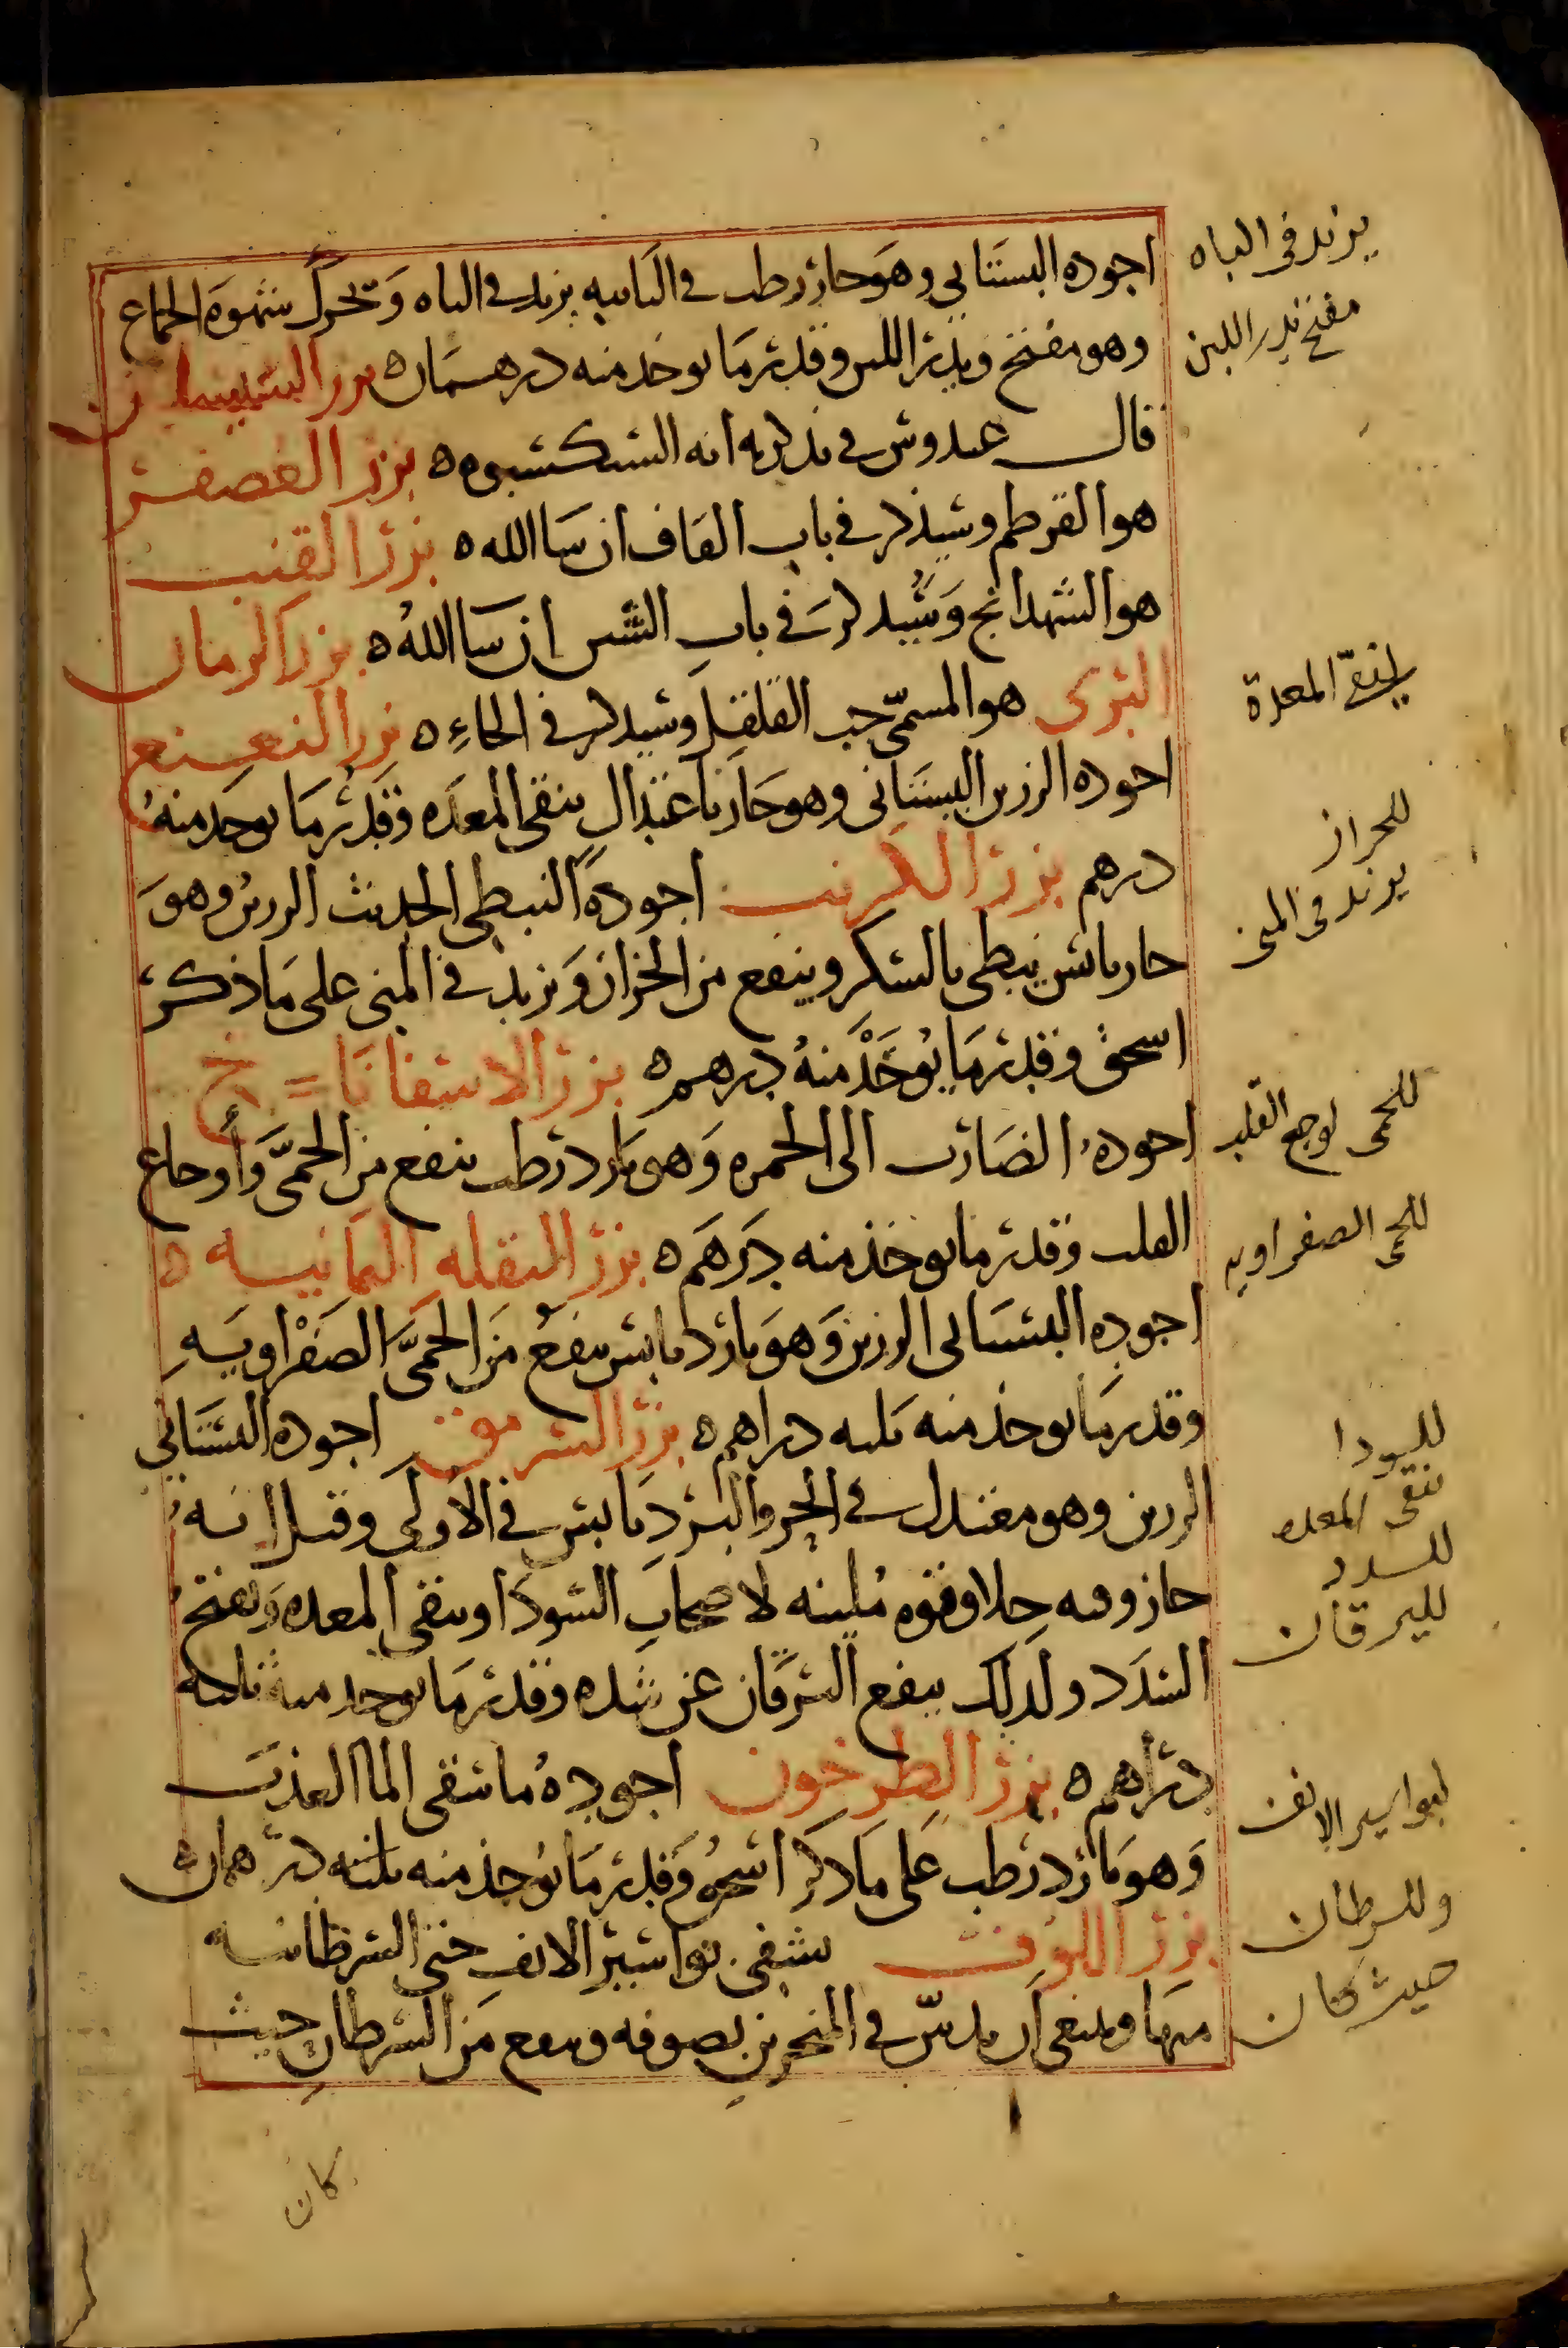 اجوده البستاني وهو حار رطب في الثانيه يزيد في الباه وتحرك شهوة الجماع
وهو مفتح ويدر اللبن وقدر ما يوخذ منه درهمان ه بزر
قال عبدوش في تذكرته انه الششكشبوه ه بزر العصفر
هو القرطم وسيذكر في باب القاف ان سا الله ه بزر القنب
هو الشهدانج وسيذكر في باب الشين ان سا الله ه بزر الرمان
البري هو المسمى حب القلقل وسيذكر في الحاء ه بزر النعنع
اجوده الرزين البستاني وهو حار باعتدال ينقي المعده وقدر ما يوخذ منه
درهم بزر الكرنب اجوده النبطي الحديث الرزين وهو
حار يابس يبطي بالسكر وينفع من الحزاز ويزيد في المني على ما ذكر
اسحق وقدر ما يوخذ منه درهم ه بزر الاسفاناخ
اجوده الضارب الى الحمره وهو بارد رطب ينفع من الحمى واوجاع
القلب وقدر ما يوخذ منه درهم ه بزر البقله اليمانيه ه
اجوده البستاني الرزين وهو بارد يابس ينفع من الحمى الصفراويه
وقدر ما يوخذ منه ثلثه دراهم ه بزر السرمق اجوده البستاني
الرزين وهو معتدل في الحر والبرد يابس في الاولى وقيل انه
حار وفيه جلا وقوه ملينه لاصحاب السودا وينقي المعده ويفتح
السدد ولذلك ينفع اليرقان عن سده وقدر ما يوخذ منه ثلثه
دراهم ه بزر الطرخون اجوده ما سقي الما العذب
وهو بارد رطب على ما ذكر اسحق وقدر ما يوخذ منه ثلثه درهمان ه
بزر اللوف يشفي بواسير الانف حتى السرطانيه
منها وينبغي ان يدس في المنخرين بصوفه وينفع من السرطان حيث
كان
يزيد في الباه
مفتح يدر اللبن
لينقي المعدة
للحزاز
يزيد في المني
للحمى لوجع القلب
للحمى الصفراويه
للسودا
تنقي المعده
للسدد
لليرقان
لبواسير الانف
وللسرطان
حيث كان